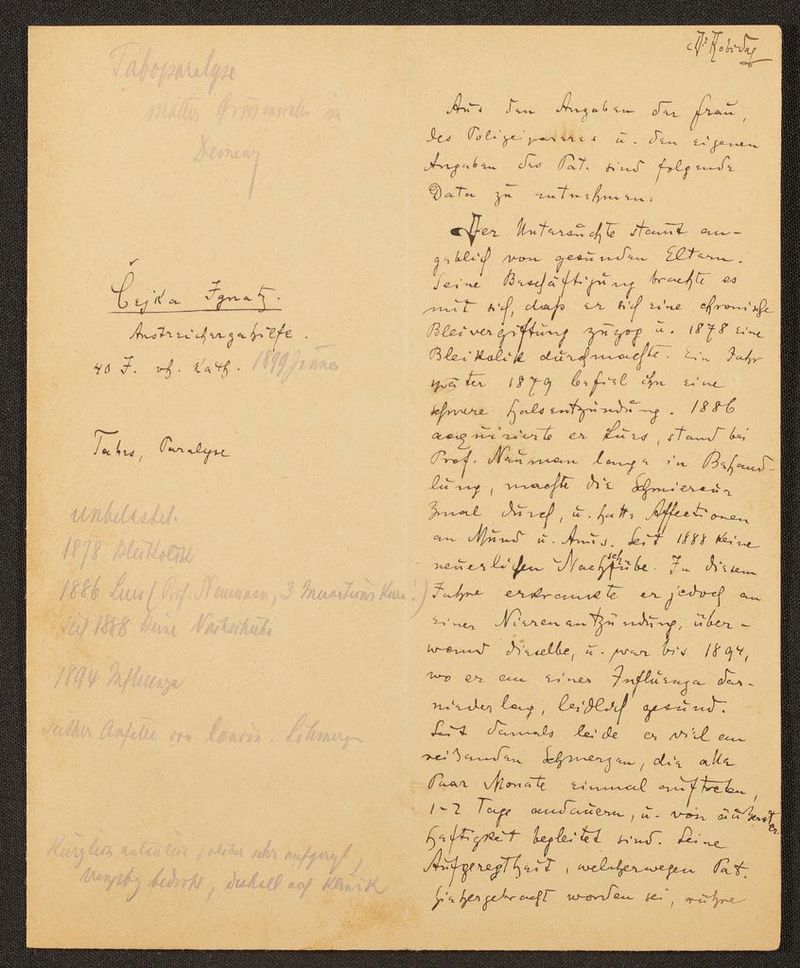 Taboparalyse
in
Demenz
Čejka Ignatz.
Anstreichergehilfe.
40 J. vh. kath. 1899 Jänner
Tabes, Paralyse
unbelastet.
1878 Bleikolik
1886 Lues (Prof. Neumann, 3 Inunctions Kuren)
Seit 1888 keine Nachschübe
1894 Influenza
Seither Anfälle von lancin. Schmerzen
Kürzlich sehr aufgeregt,
bedroht, deshalb auf Klinik
Aus den Angaben der Frau,
des Polizeipareres u. den eigenen
Angaben des Pat. sind folgende
Data zu entnehmen:
Der Untersuchte stamt an-
geblich von gesunden Eltern.
Seine Beschäftigung brachte es
mit sich, daß er sich eine chronische
Bleivergiftung zuzog u. 1878 eine
Bleikolik durchmachte. Ein Jahr
später 1879 befiel ihn eine
schwere Halsentzündung. 1886
acquirierte er Lues, stand bei
Prof. Neuman lange in Behand-
lung, machte die Schmiercur
3mal durch, u. hatte Affectionen
an Mund u. Anus. Seit 1888 keine
neuerlichen Nachschübe. In diesem
Jahre erkrankte er jedoch an
einer Nierenentzündung, über-
wand dieselbe, u. war bis 1894,
wo er an einer Influenza dar-
niederlag, leidlich gesund.
Seit damals leide er viel an
reißenden Schmerzen, die alle
Paar Monate einmal auftreten,
1-2 Tage andauern, u. von äußerster
Heftigkeit begleitet sind. Seine
Aufgeregtheit, welcherwegen Pat.
hiehergebracht worden sei, rühre